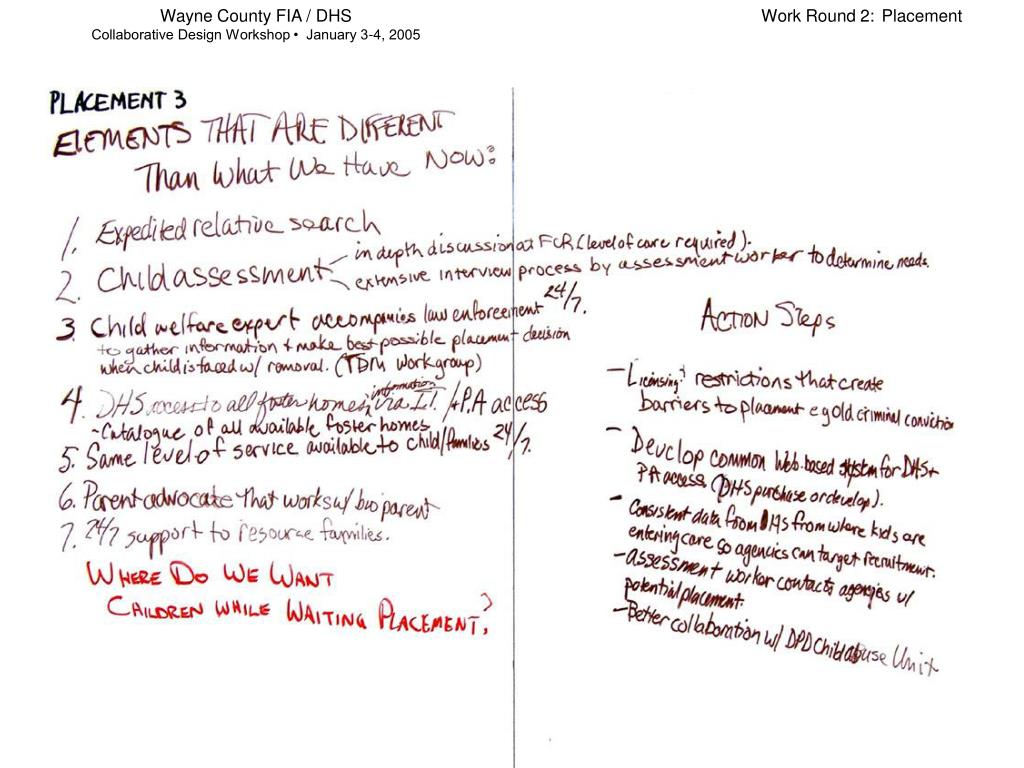 Wayne County FIA / DHS
Collaborative Design Workshop • January 3-4, 2005
Work Round 2: Placement
PLACEMENT 3
ELEMENTS THAT ARE DIFFERENT
Than What We Have NOW:
1. Expedited relative search
2. Child assessment
in depth discussion at FCR (level of care required).
extensive interview process by assessment worker to determine needs.
3. Child welfare expert accompanies law enforcement 24/7.
to gather information + make best possible placement decision
when child is faced w/ removal. (TDM workgroup)
4. DHS access to all foster homes information via I.T. / + P.A access
~Catalogue of all available foster homes
5. Same level of service available to child/families 24/7.
6. Parent advocate that works w/ bio parent
7. 24/7 support to resource families.
WHERE DO WE WANT
CHILDREN WHILE WAITING PLACEMENT?
ACTION STEPS
- Licensing restrictions that create
barriers to placement eg old criminal conviction
- Develop common Web-based system for DHS +
PA access (DHS purchase or develop).
- Consistent data from DHS from where kids are
entering care so agencies can target recruitment.
- assessment worker contacts agencies w/
potential placement.
- Better collaboration w/ DPD Child abuse Unit